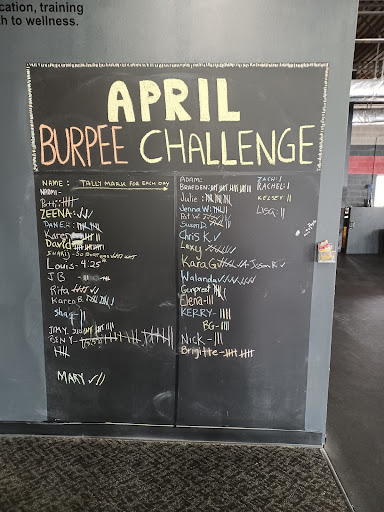 cation, training
th to wellness.
APRIL
BURPEE CHALLENGE
NAME: TALLY MARK FOR EACH DAY
NAOMI -
Patti:
ZEENA:
DANER:
Karen
David
Louis - 4:25
JB -
Rita
Karen B.
Shaq -
JIMMY
BEN Y -
MARY
ADAM:
BRAEDEN:
Julie:
Jenna W:
Pat W.
Susan D.
Chris K.
Lexy
Kara G Jason K
Walanda
Gunpreet
Elena -
KERRY -
BG -
Nick -
Brigitte -
ZACH:
RACHEL:
KELSEY
LISA: